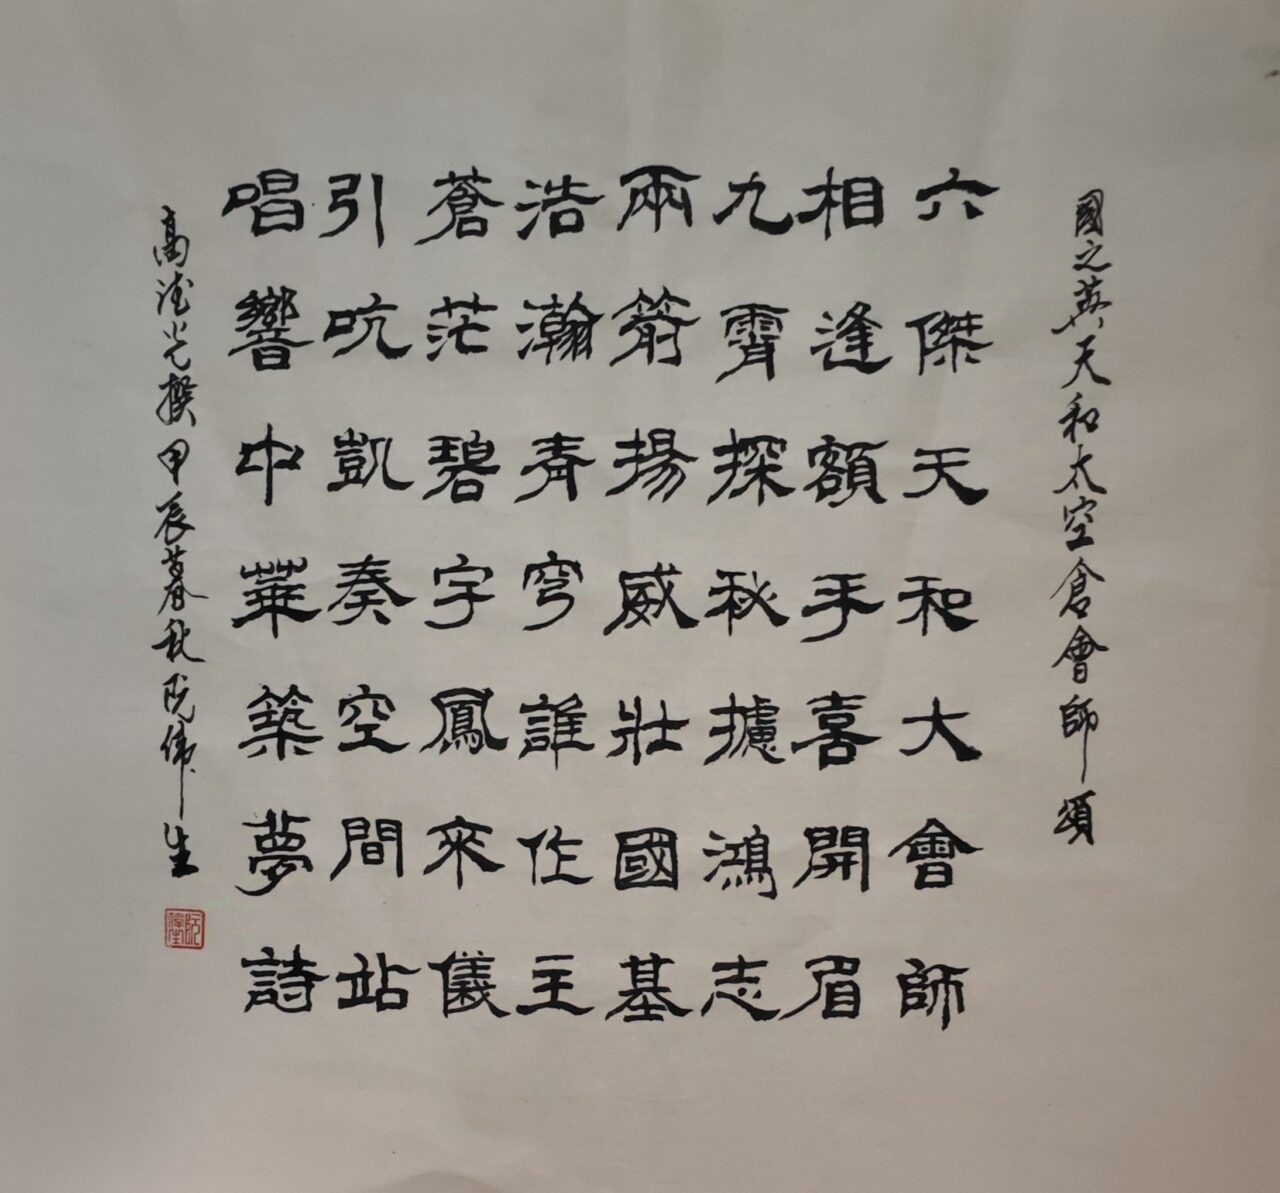 國之英天和太空倉會師頌
六傑天和大會師
相逢額手喜開眉
九霄探秋攄鴻志
兩箭揚威壯國基
浩瀚青穹誰作主
蒼茫碧宇鳳來儀
引吭凱奏空間站
唱響中華築夢詩
高德光撰甲辰暮秋阮偉生